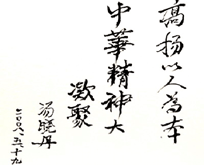 高扬以人為本
中華精神大
凝聚
汤晓丹
二〇〇八.五.十九